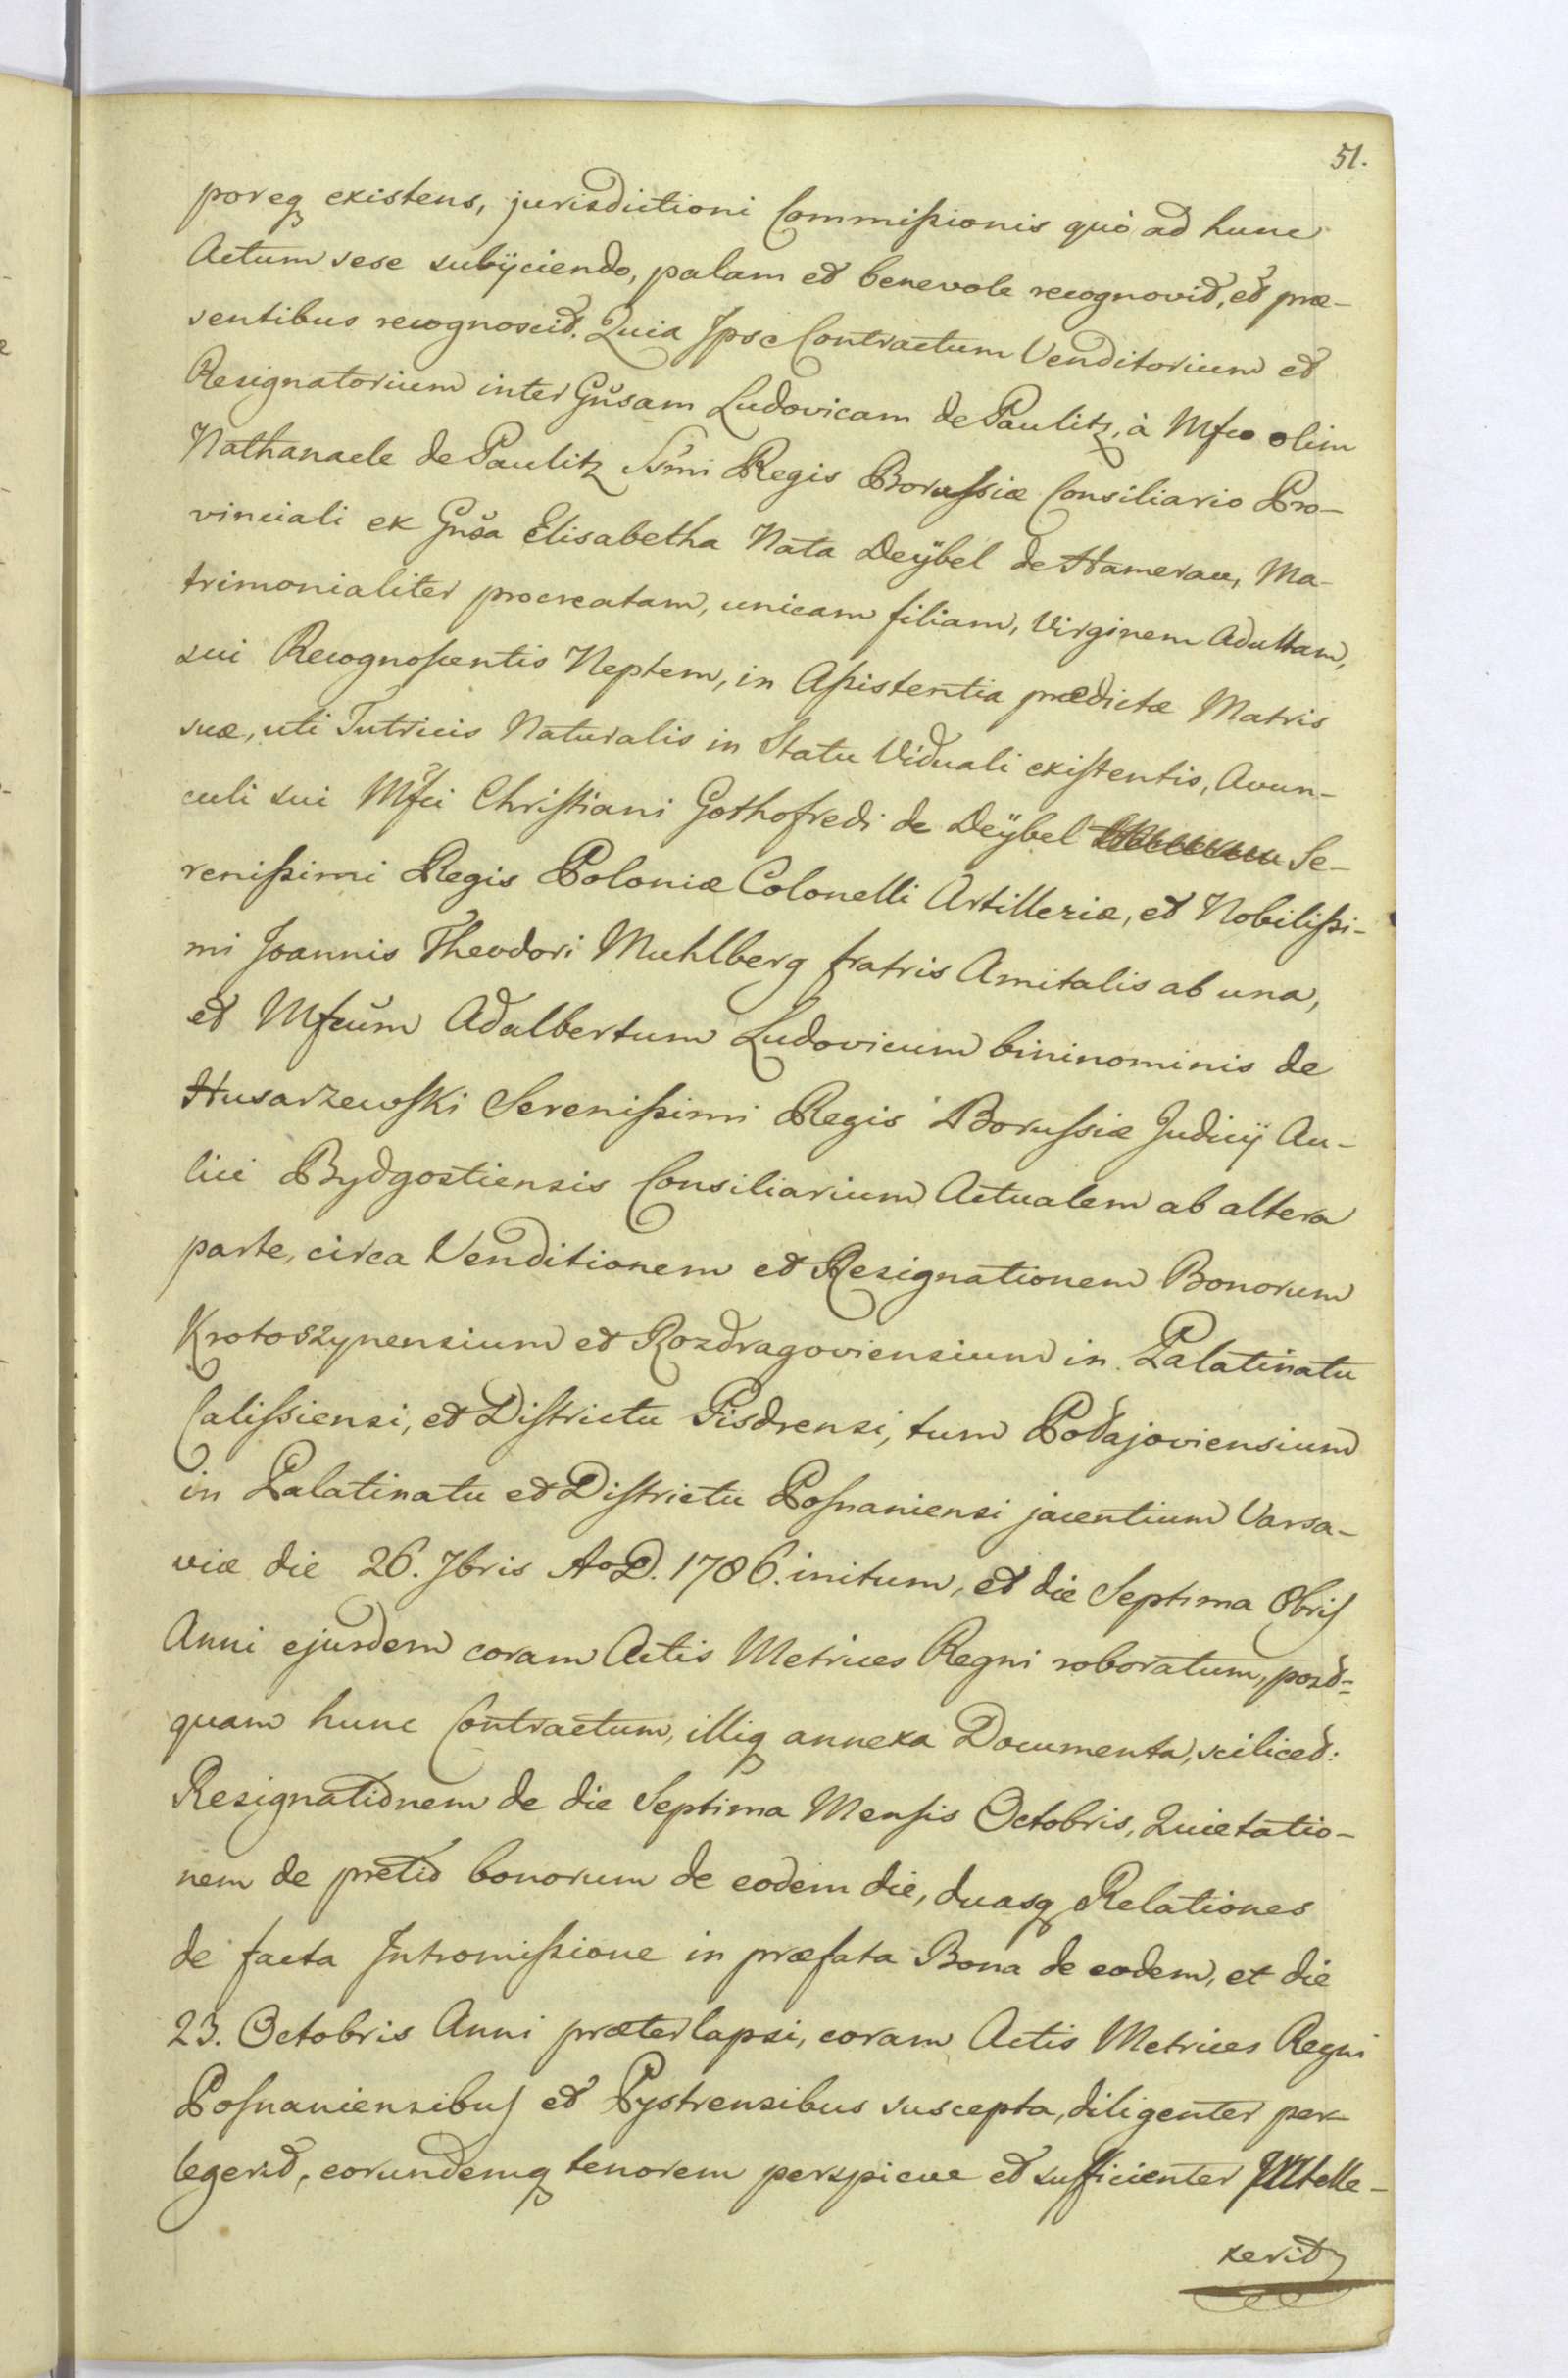 51.
poreq existens, jurisdictioni Commissionis quò ad hunc
Actum sese subijciendo, palam et benevole recognovit, et præ-
sentibus recognoscit. Quia Ipse Contractum Venditorium et
Resignatorium inter Gnsam Ludovicam de Paulitz, à Mfco olim
Nathanaele de Paulitz Ssmi Regis Borussiæ Consiliario Pro-
vinciali ex Gnsa Elisabetha Nata Deÿbel de Hamerau, Ma-
trimonialiter procreatam, unicam filiam, Virginem Adultam,
sui Recognoscentis Neptem, in Assistentia prædictæ Matris
suæ, uti Tutricis Naturalis in Statu Viduali existentis, Avun-
culi sui Mfci Christiani Gothofredi de Deÿbel Se-
renissimi Regis Poloniæ Colonelli Artilleriæ, et Nobilissi-
mi Joannis Theodori Muhlberg fratris Amitalis ab una,
et Mfcum Adalbertum Ludovicum bininominis de
Husarzewski Serenissimi Regis Borussiæ Judicij Au-
lici Bydgostiensis Consiliarium Actualem ab altera
parte, circa Venditionem et Resignationem Bonorum
Krotoszynensium et Rozdragoviensium in Palatinatu
Calissiensi, et Districtu Pisdrensi, tum Podajoviensium
in Palatinatu et Districtu Posnaniensi jacentium Varsa-
viæ die 26. 7bris AoD. 1786. initum, et die Septima 8bris
Anni ejusdem coram Actis Metrices Regni roboratum, post-
quam hunc Contractum, illiq annexa Documenta, scilicet:
Resignationem de die Septima Mensis Octobris, Quietatio-
nem de pretio bonorum de eodem die, duasq Relationes
de facta Intromissione in præfata Bona de eodem, et die
23. Octobris Anni præterlapsi, coram Actis Metrices Regni
Posnaniensibus et Pystrensibus suscepta, diligenter per-
legerit, eorundemq tenorem perspicue et sufficienter Intelle-
xerit